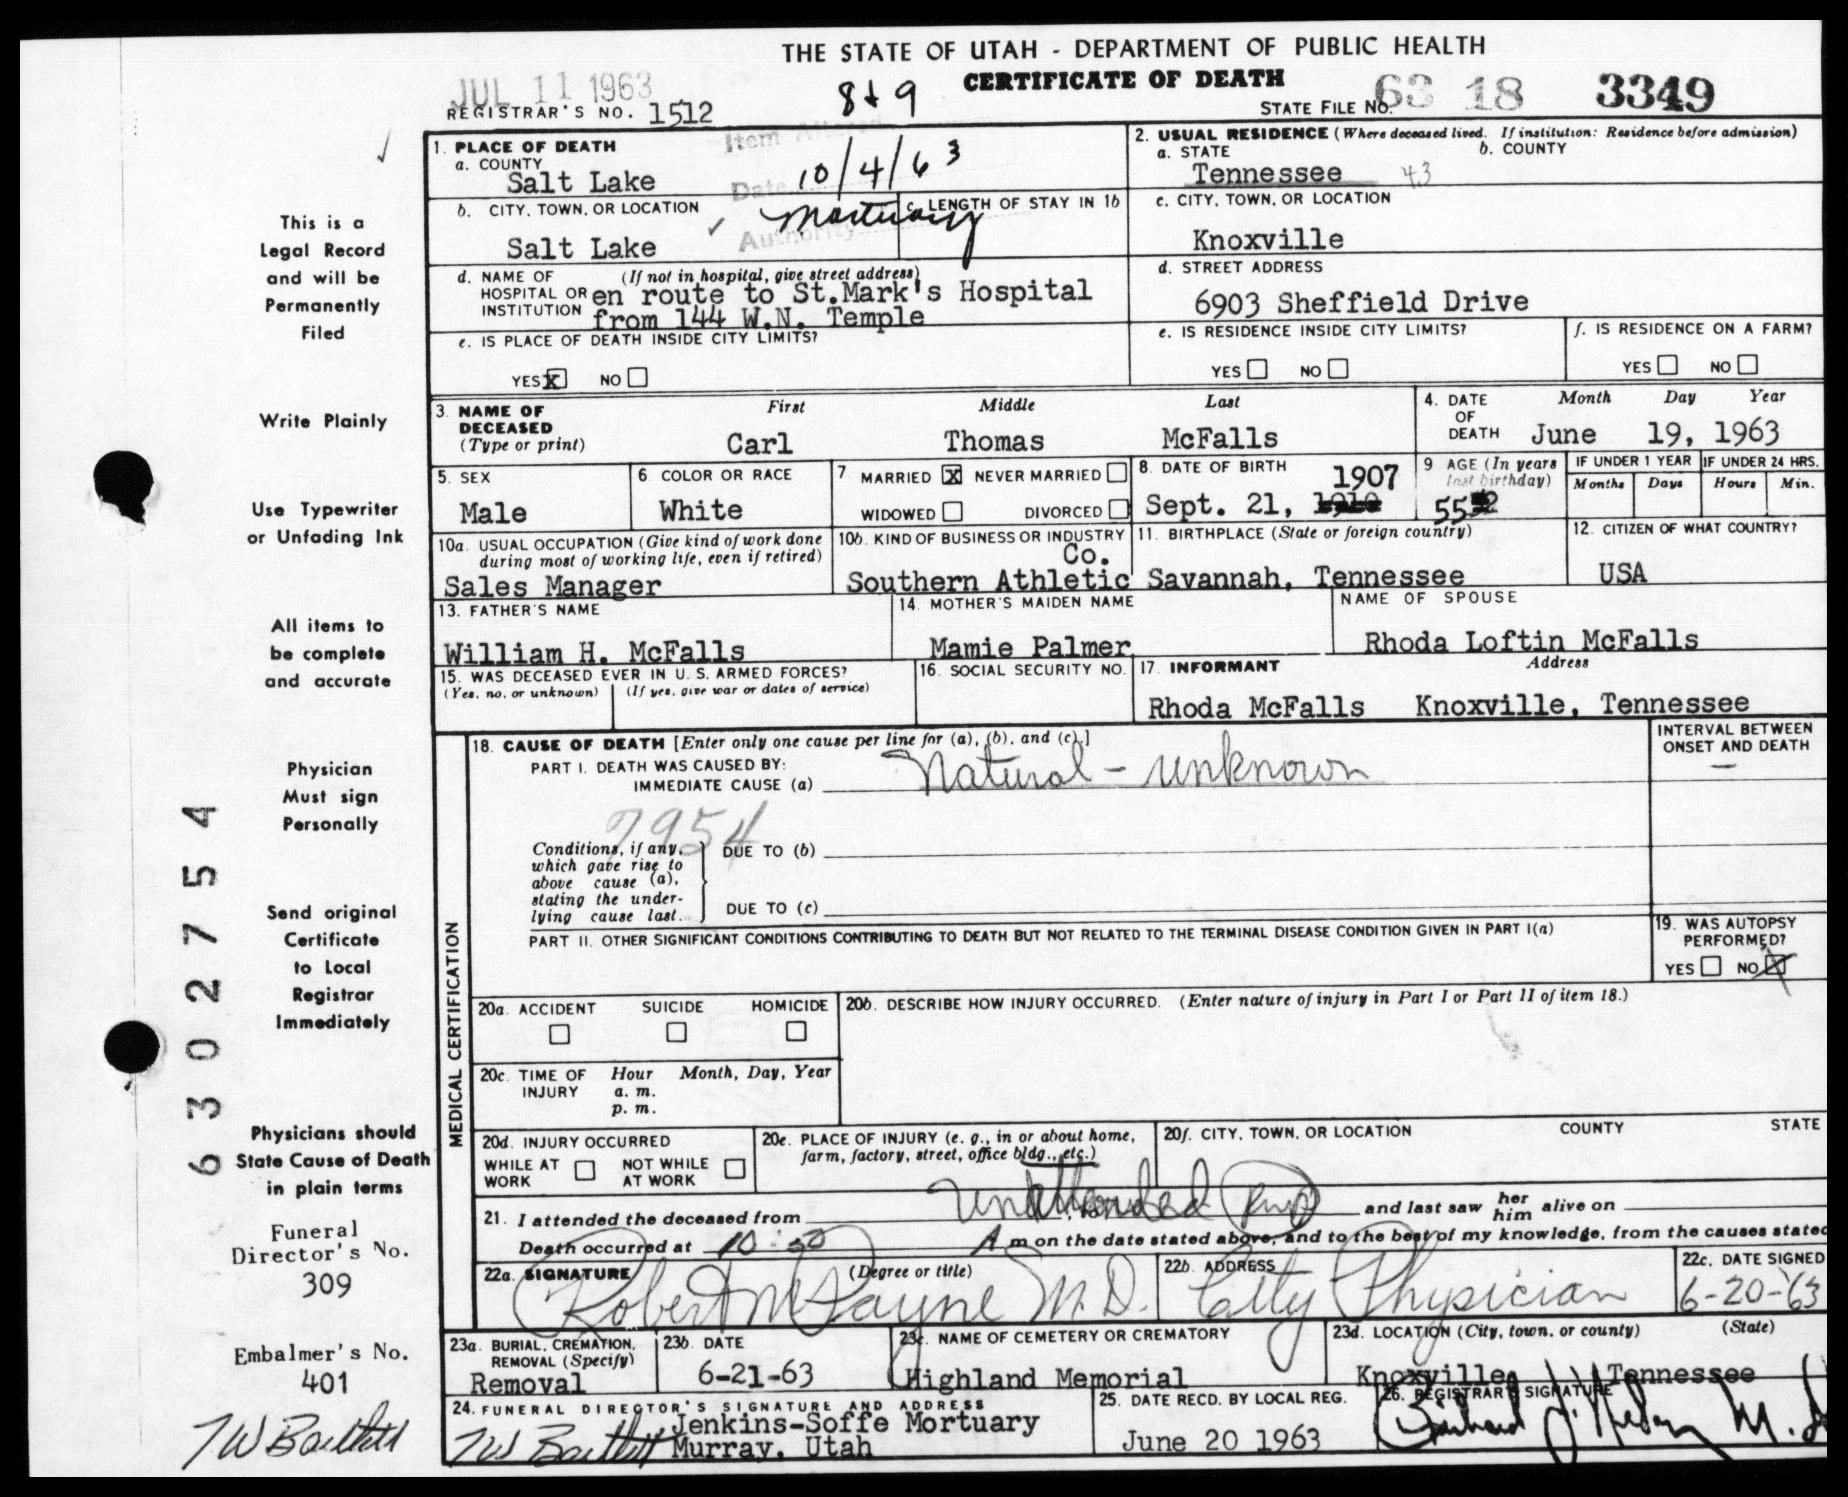 THE STATE OF UTAH - DEPARTMENT OF PUBLIC HEALTH
CERTIFICATE OF DEATH
JUL 11 1963
REGISTRAR'S NO. 1512
8 & 9
STATE FILE NO. 63 18 3349
Item Altered
10/4/63
Date
Mortuary
Authority
1. PLACE OF DEATH
a. COUNTY
Salt Lake
b. CITY, TOWN, OR LOCATION
Salt Lake
c. LENGTH OF STAY IN 1b
d. NAME OF HOSPITAL OR INSTITUTION (If not in hospital, give street address)
en route to St.Mark's Hospital
from 144 W.N. Temple
e. IS PLACE OF DEATH INSIDE CITY LIMITS?
YES X NO
2. USUAL RESIDENCE (Where deceased lived. If institution: Residence before admission)
a. STATE
b. COUNTY
Tennessee 43
c. CITY, TOWN, OR LOCATION
Knoxville
d. STREET ADDRESS
6903 Sheffield Drive
e. IS RESIDENCE INSIDE CITY LIMITS?
YES NO
f. IS RESIDENCE ON A FARM?
YES NO
3. NAME OF DECEASED (Type or print)
First Middle Last
Carl Thomas McFalls
4. DATE OF DEATH
Month Day Year
June 19, 1963
5. SEX
Male
6 COLOR OR RACE
White
7 MARRIED X NEVER MARRIED
WIDOWED DIVORCED
8. DATE OF BIRTH
1907
Sept. 21, 1910
9 AGE (In years last birthday)
55
IF UNDER 1 YEAR
Months Days
IF UNDER 24 HRS.
Hours Min.
10a. USUAL OCCUPATION (Give kind of work done during most of working life, even if retired)
Sales Manager
10b. KIND OF BUSINESS OR INDUSTRY
Co.
Southern Athletic
11. BIRTHPLACE (State or foreign country)
Savannah, Tennessee
12. CITIZEN OF WHAT COUNTRY?
USA
13. FATHER'S NAME
William H. McFalls
14. MOTHER'S MAIDEN NAME
Mamie Palmer
NAME OF SPOUSE
Rhoda Loftin McFalls
15. WAS DECEASED EVER IN U. S. ARMED FORCES?
(Yes, no, or unknown) (If yes, give war or dates of service)
16. SOCIAL SECURITY NO.
17. INFORMANT Address
Rhoda McFalls Knoxville, Tennessee
MEDICAL CERTIFICATION
18. CAUSE OF DEATH [Enter only one cause per line for (a), (b), and (c).]
PART I. DEATH WAS CAUSED BY:
IMMEDIATE CAUSE (a) Natural - unknown
INTERVAL BETWEEN ONSET AND DEATH
7954
Conditions, if any, which gave rise to above cause (a), stating the underlying cause last.
DUE TO (b)
DUE TO (c)
PART II. OTHER SIGNIFICANT CONDITIONS CONTRIBUTING TO DEATH BUT NOT RELATED TO THE TERMINAL DISEASE CONDITION GIVEN IN PART I(a)
19. WAS AUTOPSY PERFORMED?
YES NO X
20a. ACCIDENT SUICIDE HOMICIDE
20b. DESCRIBE HOW INJURY OCCURRED. (Enter nature of injury in Part I or Part II of item 18.)
20c. TIME OF INJURY
Hour Month, Day, Year
a. m.
p. m.
20d. INJURY OCCURRED
WHILE AT WORK NOT WHILE AT WORK
20e. PLACE OF INJURY (e. g., in or about home, farm, factory, street, office bldg., etc.)
20f. CITY, TOWN, OR LOCATION COUNTY STATE
21. I attended the deceased from Unattended and last saw her him alive on
Death occurred at 10:50 A m on the date stated above, and to the best of my knowledge, from the causes stated
22a. SIGNATURE (Degree or title)
Robert M Payne M.D.
22b. ADDRESS
City Physician
22c. DATE SIGNED
6-20-63
23a. BURIAL, CREMATION, REMOVAL (Specify)
Removal
23b. DATE
6-21-63
23c. NAME OF CEMETERY OR CREMATORY
Highland Memorial
23d. LOCATION (City, town, or county) (State)
Knoxville, Tennessee
24. FUNERAL DIRECTOR'S SIGNATURE AND ADDRESS
TW Bartlett
Jenkins-Soffe Mortuary
Murray, Utah
25. DATE RECD. BY LOCAL REG.
June 20 1963
26. REGISTRAR'S SIGNATURE
This is a
Legal Record
and will be
Permanently
Filed
Write Plainly
Use Typewriter
or Unfading Ink
All items to
be complete
and accurate
Physician
Must sign
Personally
Send original
Certificate
to Local
Registrar
Immediately
Physicians should
State Cause of Death
in plain terms
Funeral
Director's No.
309
Embalmer's No.
401
TW Bartlett
6302754